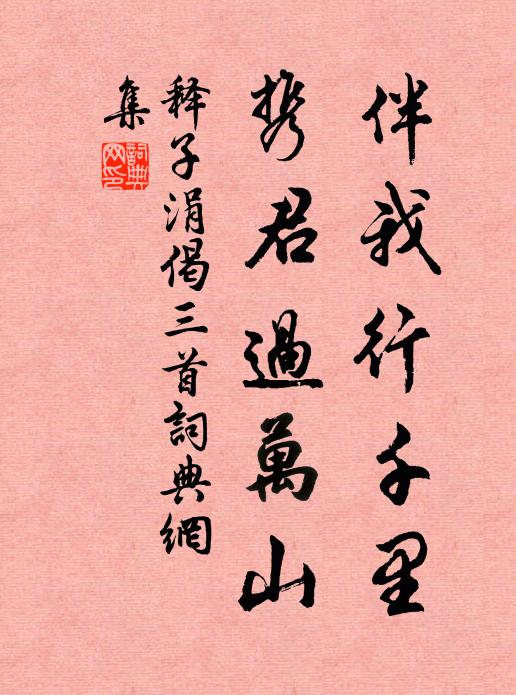 伴我行千里
携君過萬山
释子涓偈三首詞典網
集
詞典網印